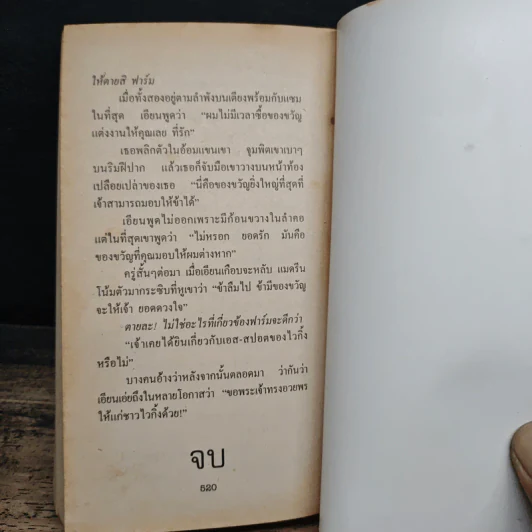 ให้ตายสิ ฟาร์ม
เมื่อทั้งสองอยู่ตามลำพังบนเตียงพร้อมกับแชม
ในที่สุด เอียนพูดว่า “ผมไม่มีเวลาซื้อของขวัญ
แต่งงานให้คุณเลย ที่รัก”
เธอพลิกตัวในอ้อมแขนเขา จุมพิตเขาเบาๆ
บนริมฝีปาก แล้วเธอก็จับมือเขาวางบนหน้าท้อง
เปลือยเปล่าของเธอ “นี่คือของขวัญยิ่งใหญ่ที่สุดที่
เจ้าสามารถมอบให้ข้าได้”
เอียนพูดไม่ออกเพราะมีก้อนขวางในลำคอ
แต่ในที่สุดเขาพูดว่า “ไม่หรอก ยอดรัก มันคือ
ของขวัญที่คุณมอบให้ผมต่างหาก”
ครู่สั้นๆต่อมา เมื่อเอียนเกือบจะหลับ แมดรีน
โน้มตัวมากระซิบที่หูเขาว่า “ข้าลืมไป ข้ามีของขวัญ
จะให้เจ้า ยอดดวงใจ”
ตายละ! ไม่ใช่อะไรที่เกี่ยวข้องฟาร์มจะดีกว่า
“เจ้าเคยได้ยินเกี่ยวกับเอส-สปอตของไวกิ้ง
หรือไม่”
บางคนอ้างว่าหลังจากนั้นตลอดมา ว่ากันว่า
เอียนเอ่ยถึงในหลายโอกาสว่า “ขอพระเจ้าทรงอวยพร
ให้แก่ชาวไวกิ้งด้วย!”
จบ
520